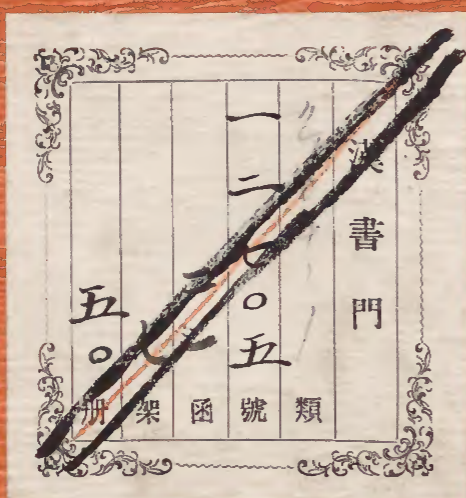 漢書門
類
一二七〇五號
函
七架
五〇冊